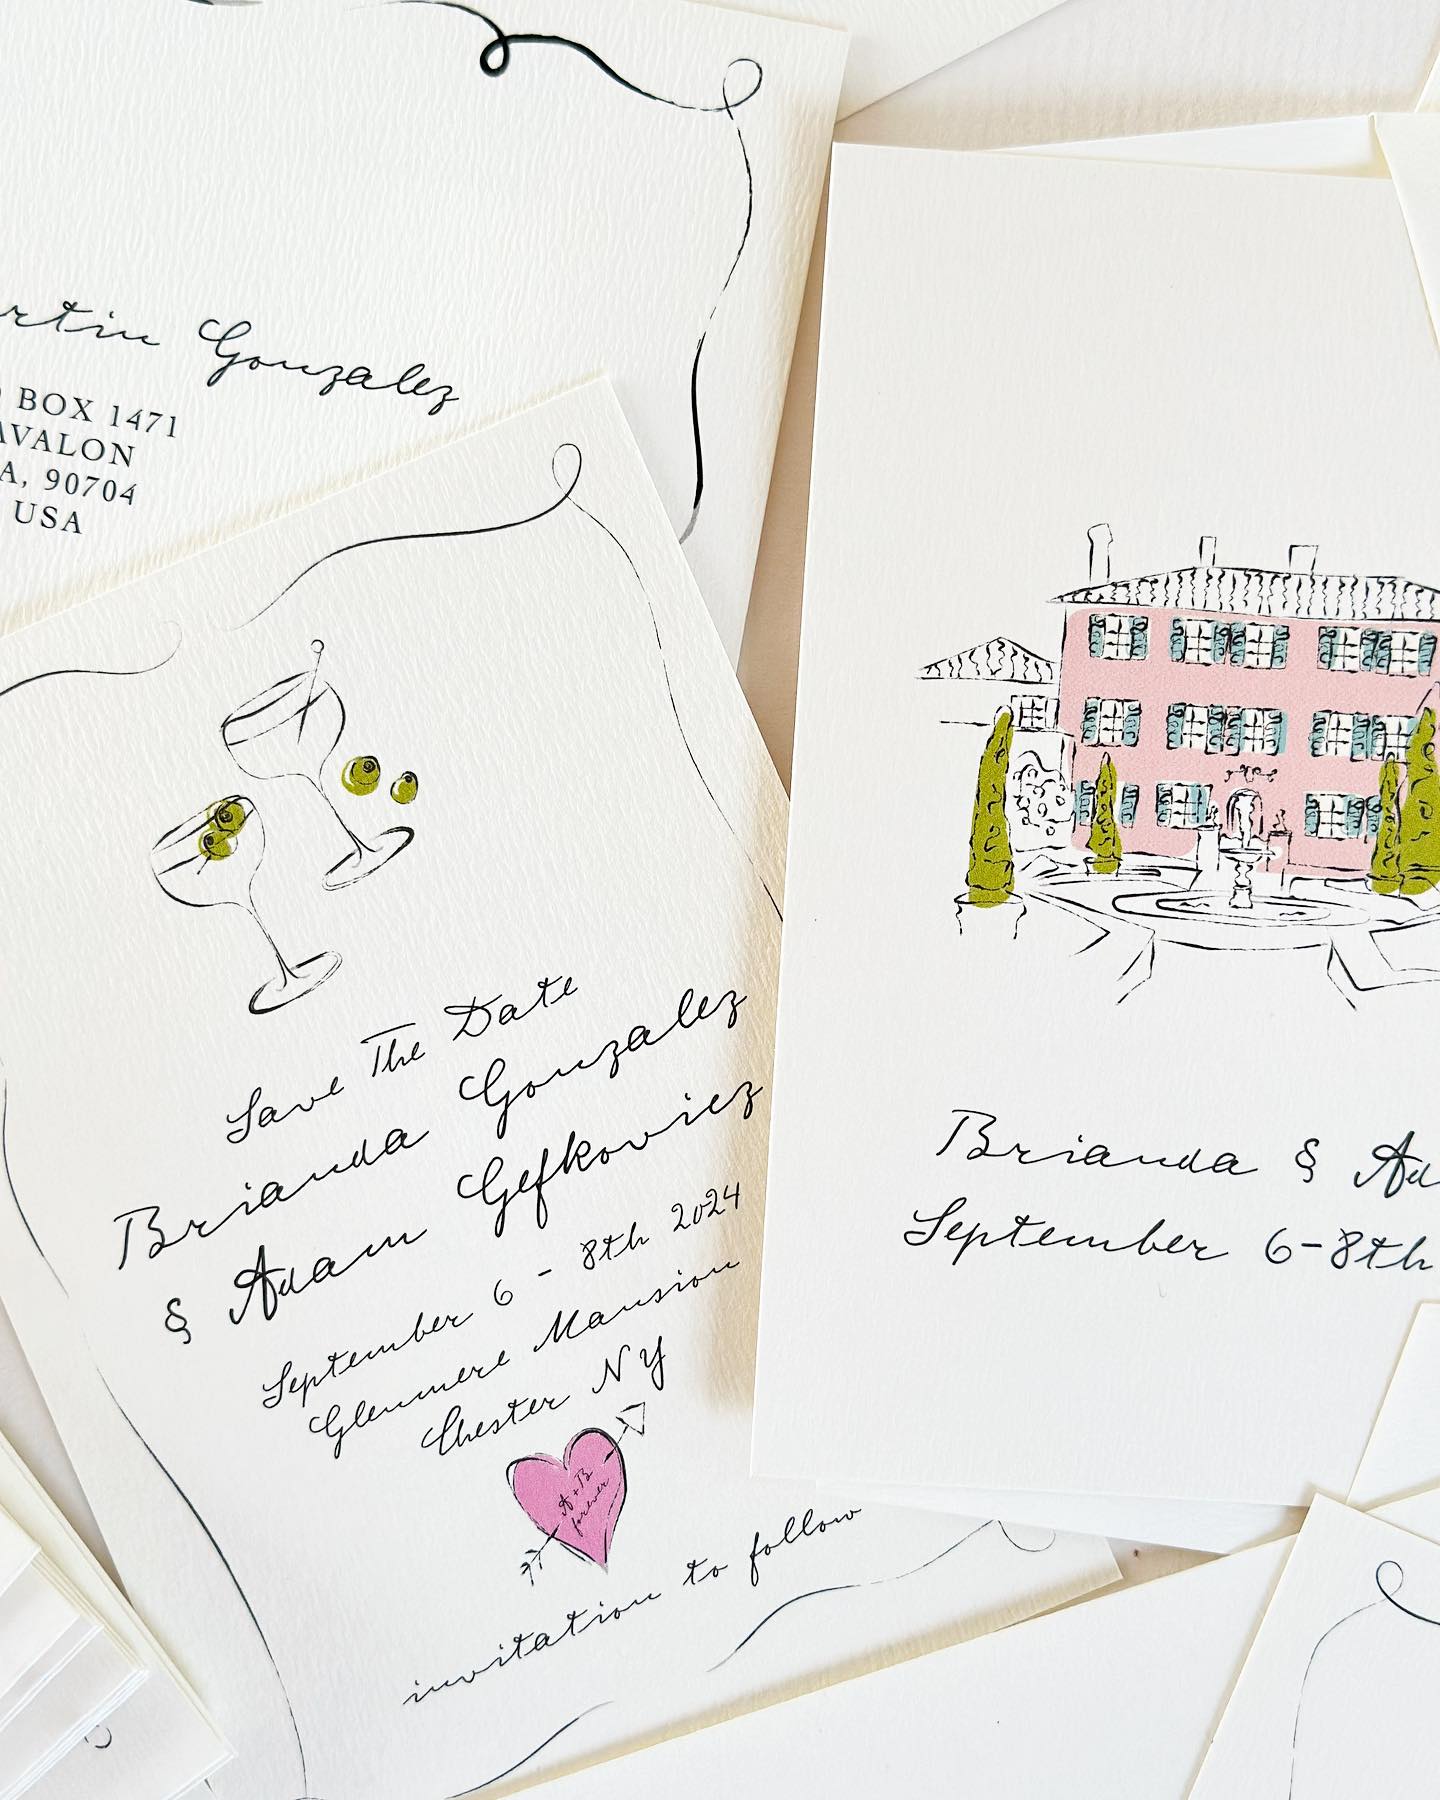 Gonzalez
BOX 1471
AVALON
90704
USA
Save The Date
Brianda Gonzalez
& Adam Gefkovicz
September 6 - 8th 2024
Glenmere Mansion
Chester NY
A + B
forever
invitation to follow
Brianda &
September 6-8th